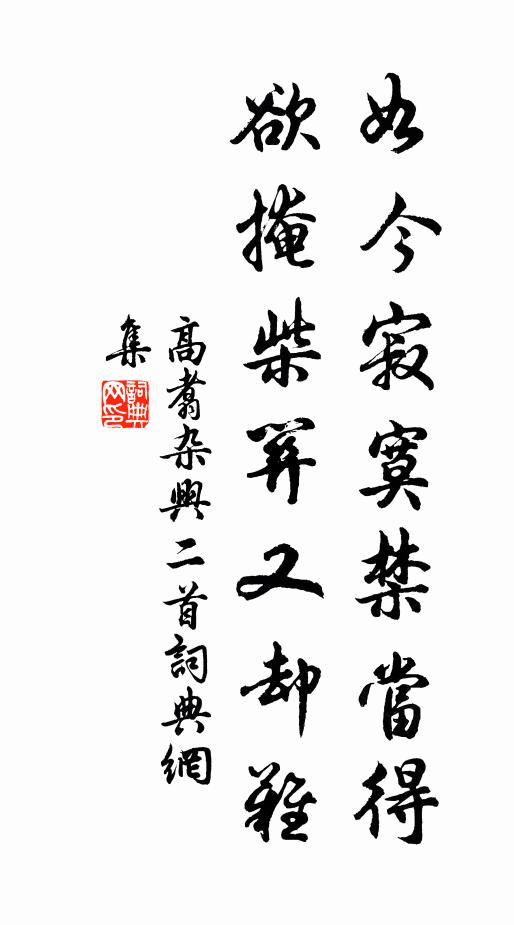 如今寂寞禁當得
欲掩柴笄又却難
高翥杂興二首詞典網
集
詞典网印